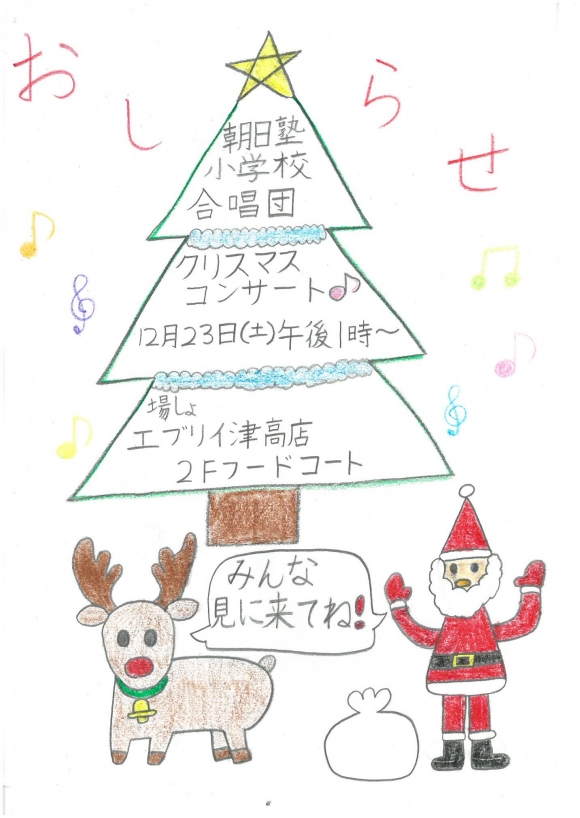 おしらせ
朝日塾
小学校
合唱団
クリスマス
コンサート♪
12月23日(土)午後1時～
場しょ
エブリイ津高店
2Fフードコート
みんな
見に来てね!